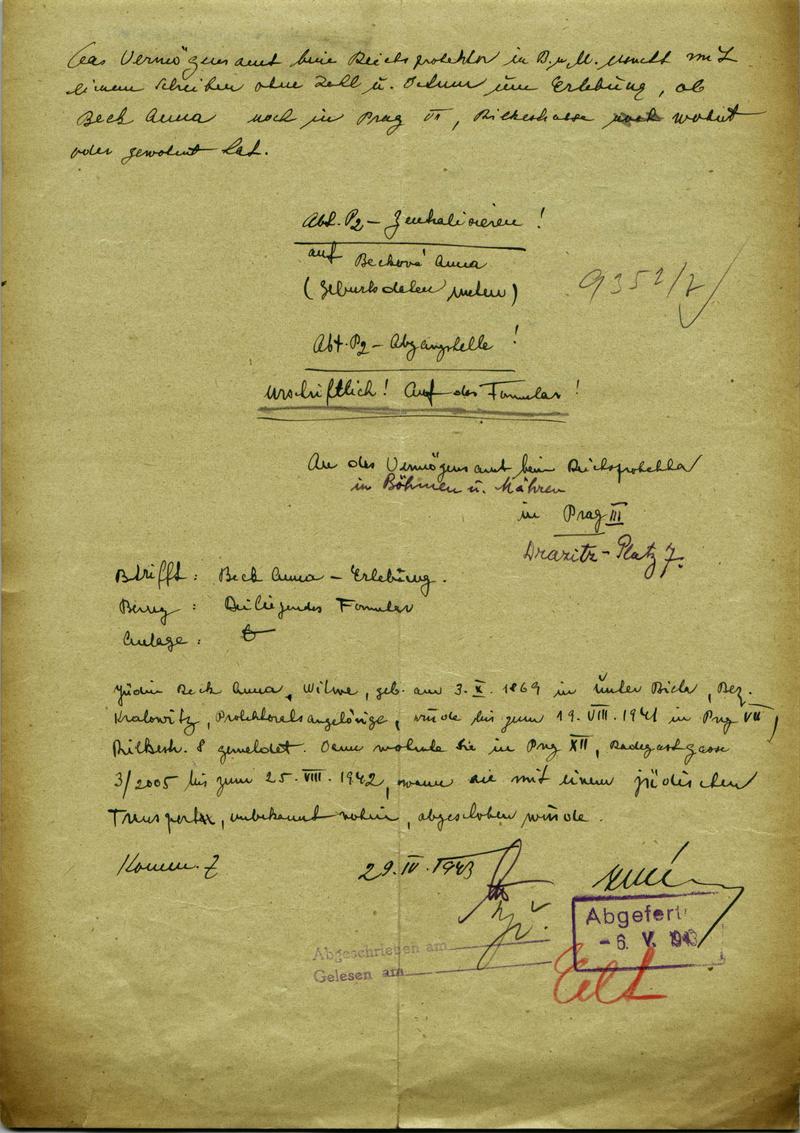 Das Vermögensamt beim Reichsprotektor in B.u.M. ersucht mit
einem Schreiben ohne Zahl u. Datum um Erhebung, ob
Beck Anna noch in Prag VII, Rilkestrasse wohnt
oder gewohnt hat.
Abt. P2 – Zentralisieren!
auf Becková Anna
(Geburtsdaten unten)
9352/7
Abt. P2 – Abgangstelle!
Urschriftlich! Auf das Formular!
An das Vermögensamt beim Reichsprotektor
in Böhmen u. Mähren
in Prag III
Drazitz-Platz 7.
Betrifft: Beck Anna – Erhebung.
Bezug: Beiliegendes Formular
Anlage:
Jüdin Beck Anna, Witwe, geb. am 3.X.1869 in Unter Biela, Bez.
Kralowitz, Protektoratsangehörige, wurde bis zum 19.VIII.1941 in Prag VII,
Rilkestr. 8 gemeldet. Dann wohnte sie in Prag XII, Radegastgasse
3/2005 bis zum 25.VIII.1942, wann sie mit einem jüdischen
Transport, unbekannt wohin, abgeschoben wurde.
Komm. 7
29.IV.1943
Abgefert
-6. V. 1943
Abgeschrieben am
Gelesen am
Eilt